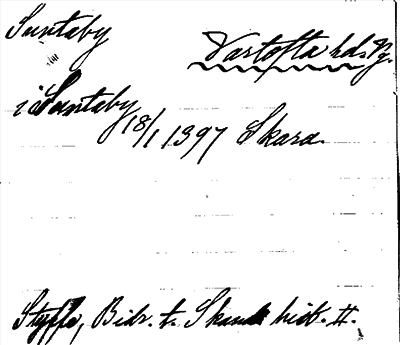 Suntaby
Vartofta hds Vg.
i Suntaby
18/1 1397 Skara.
Styffe, Bidr. t. Skand hist. II.